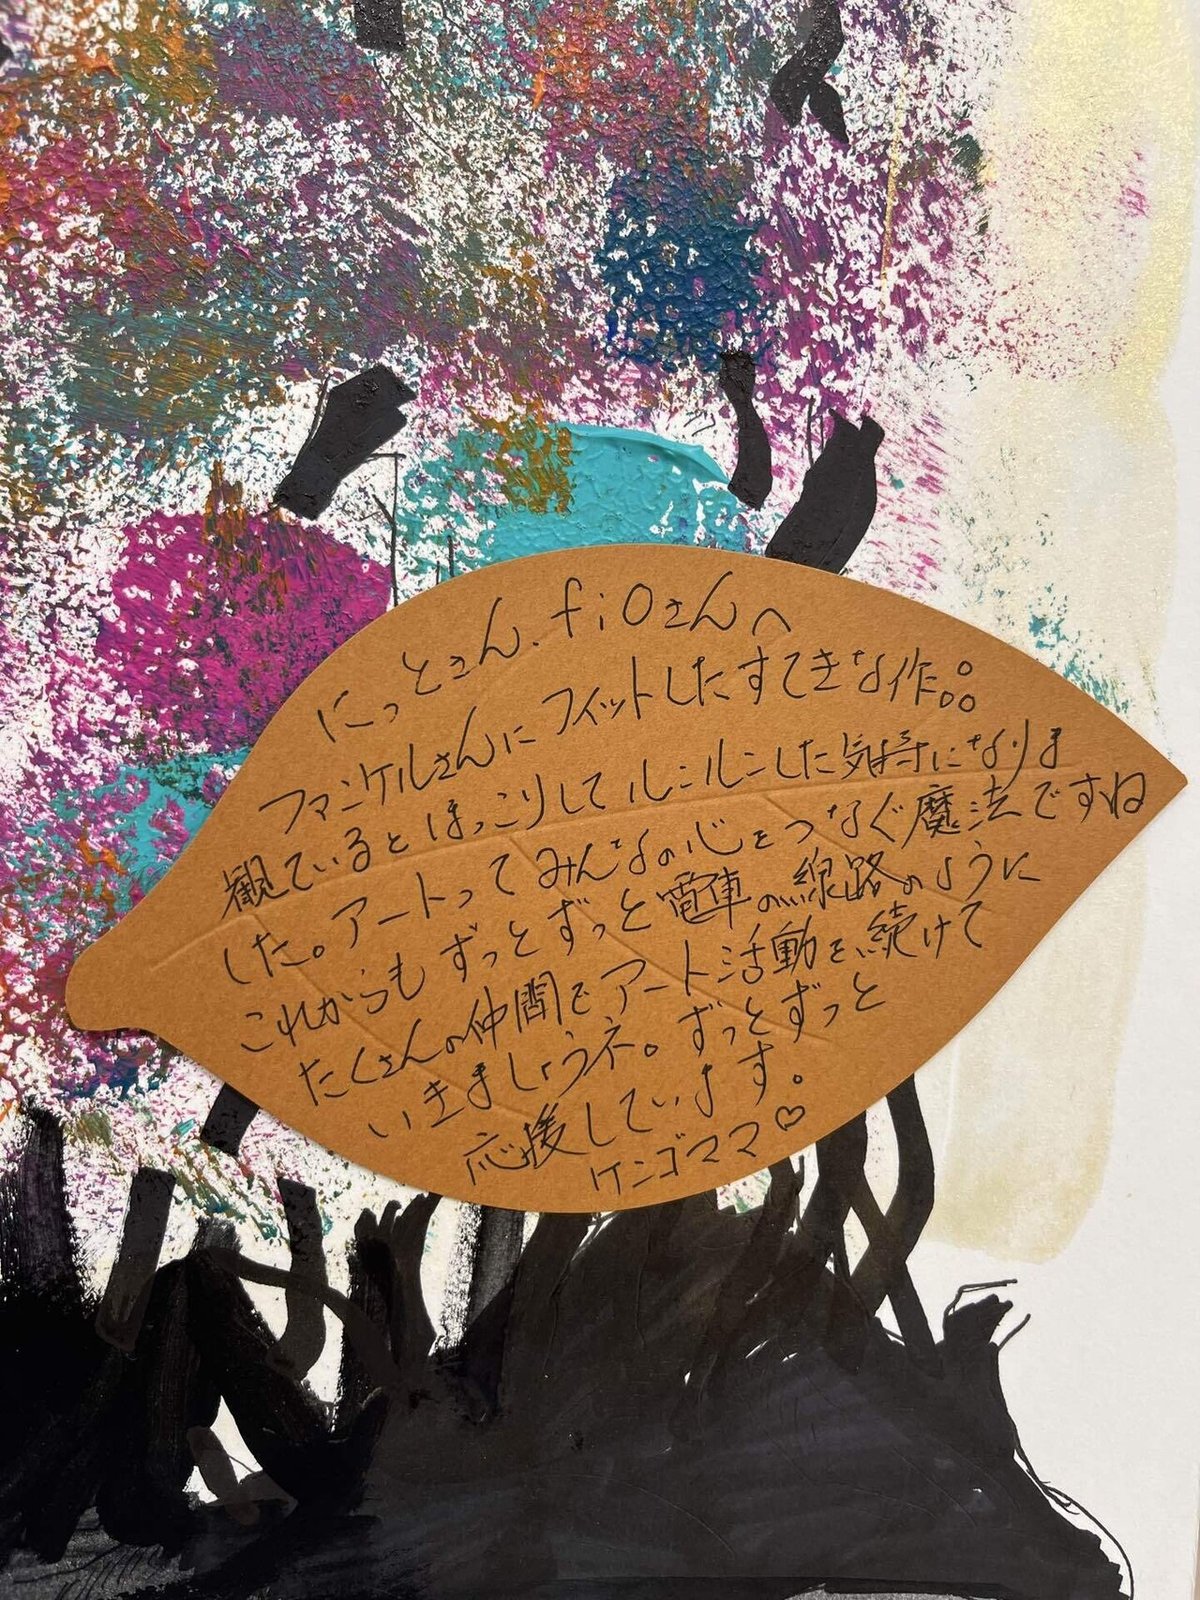 にっとさん、fiOさんへ
ファンケルさんにフィットしたすてきな作品。
観ているとほっこりしてルンルンした気持になりま
した。アートってみんなの心をつなぐ魔法ですね
これからもずっとずっと電車の線路のように
たくさんの仲間でアート活動を続けて
いきましょうネ。ずっとずっと
応援しています。
ケンゴママ♡